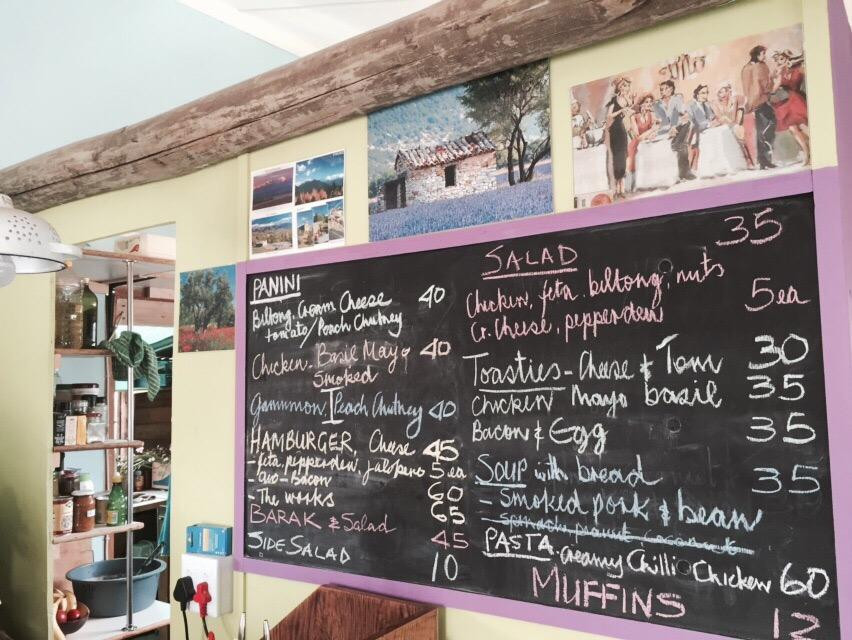 PANINI
Biltong, Cream Cheese 40
tomato/Peach Chutney
Chicken. Basil Mayo 40
Smoked
Gammon Peach Chutney 40
HAMBURGER, Cheese 45
- feta, pepperdew, jalapeno 5ea
- Bacon 60
- The works 65
BARAK & Salad 45
SIDE SALAD 10
SALAD 35
Chicken, feta, biltong, nuts
Cr. Cheese, pepperdew 5ea
Toasties - Cheese & Tom 30
Chicken Mayo basil 35
Bacon & Egg 35
SOUP with bread 35
- Smoked pork & bean
- Spinach, peanut, coconut
PASTA. creamy Chilli Chicken 60
MUFFINS 12